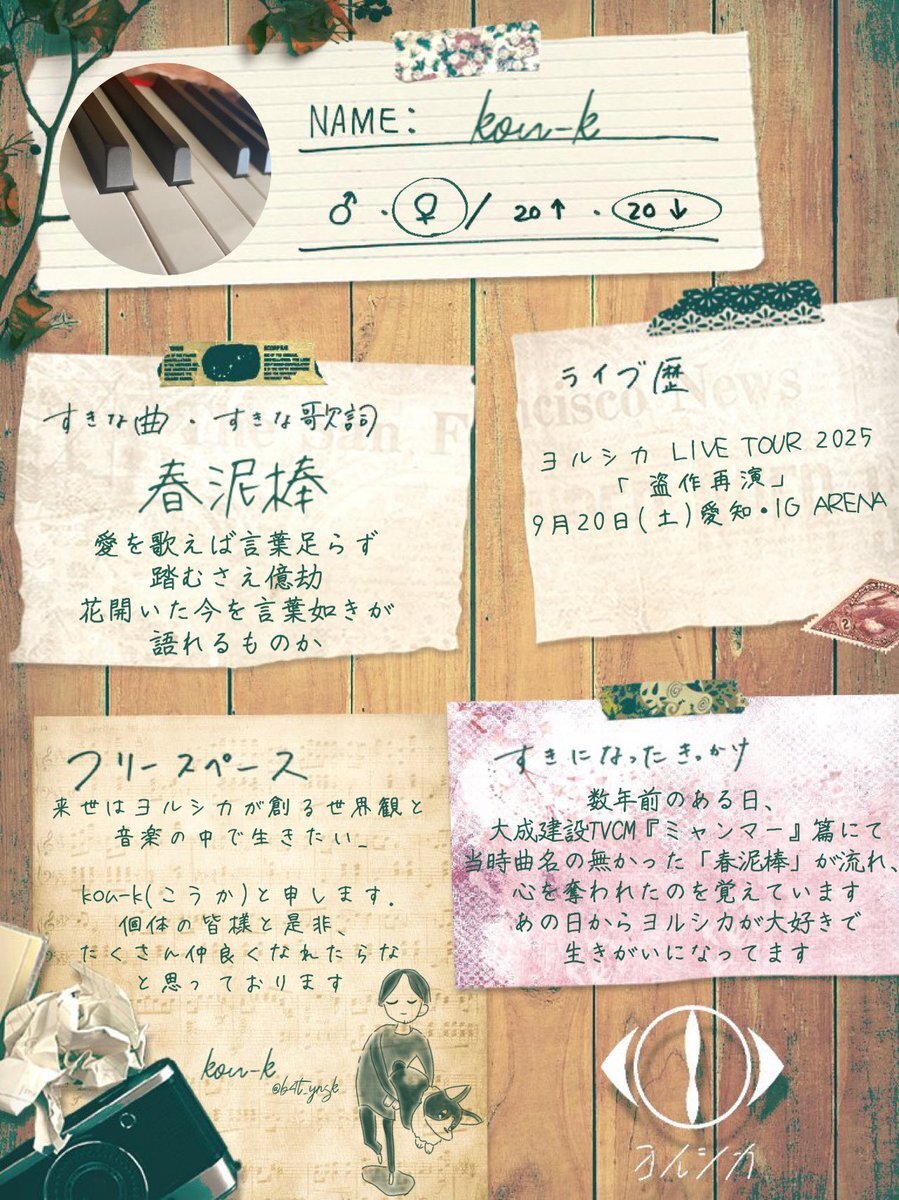 NAME: kou-k
♂・♀ / 20↑・20↓
すきな曲・すきな歌詞
春泥棒
愛を歌えば言葉足らず
踏むさえ億劫
花開いた今を言葉如きが
語れるものか
ライブ歴
ヨルシカ LIVE TOUR 2025
「盗作再演」
9月20日(土)愛知・IG ARENA
The San Francisco News
フリースペース
来世はヨルシカが創る世界観と
音楽の中で生きたい_
kou-k(こうか)と申します.
個体の皆様と是非、
たくさん仲良くなれたらな
と思っております
kou-k
@b4t_ynsk
すきになったきっかけ
数年前のある日、
大成建設TVCM『ミャンマー』篇にて
当時曲名の無かった「春泥棒」が流れ、
心を奪われたのを覚えています
あの日からヨルシカが大好きで
生きがいになってます
ヨルシカ